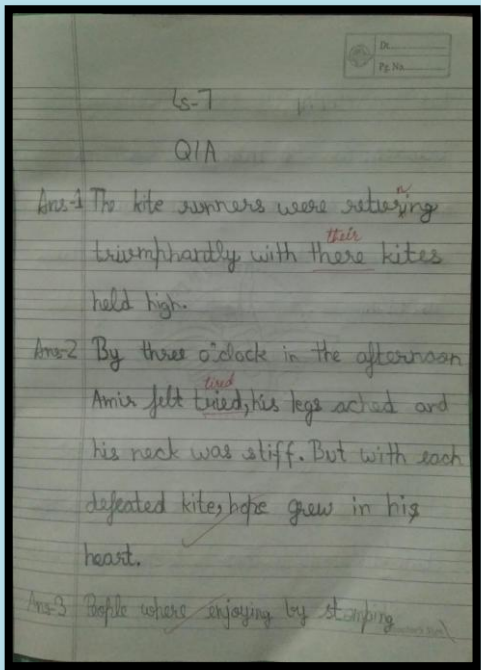 Dt.
Pg. No.
Ls-7
Q/A
Ans-1 The kite runners were returing
n
their
triumphantly with there kites
held high.
Ans-2 By three o'clock in the afternoon
tired
Amir felt tried, his legs ached and
his neck was stiff. But with each
defeated kite, hope grew in his
heart.
Ans-3 People where enjoying by stomping